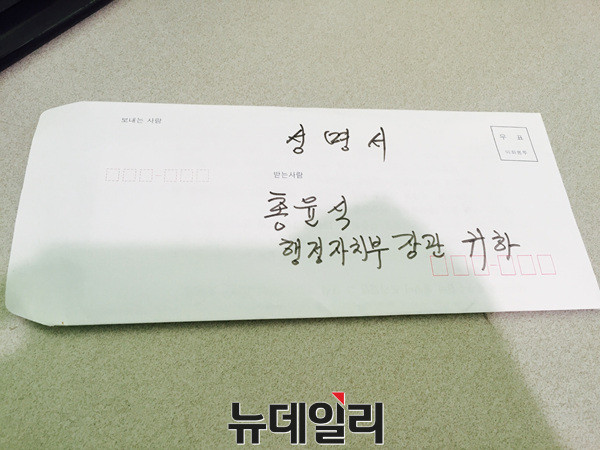 보내는 사람
성명서
우 표
받는사람
홍윤석
행정자치부 장관 귀하
뉴데일리